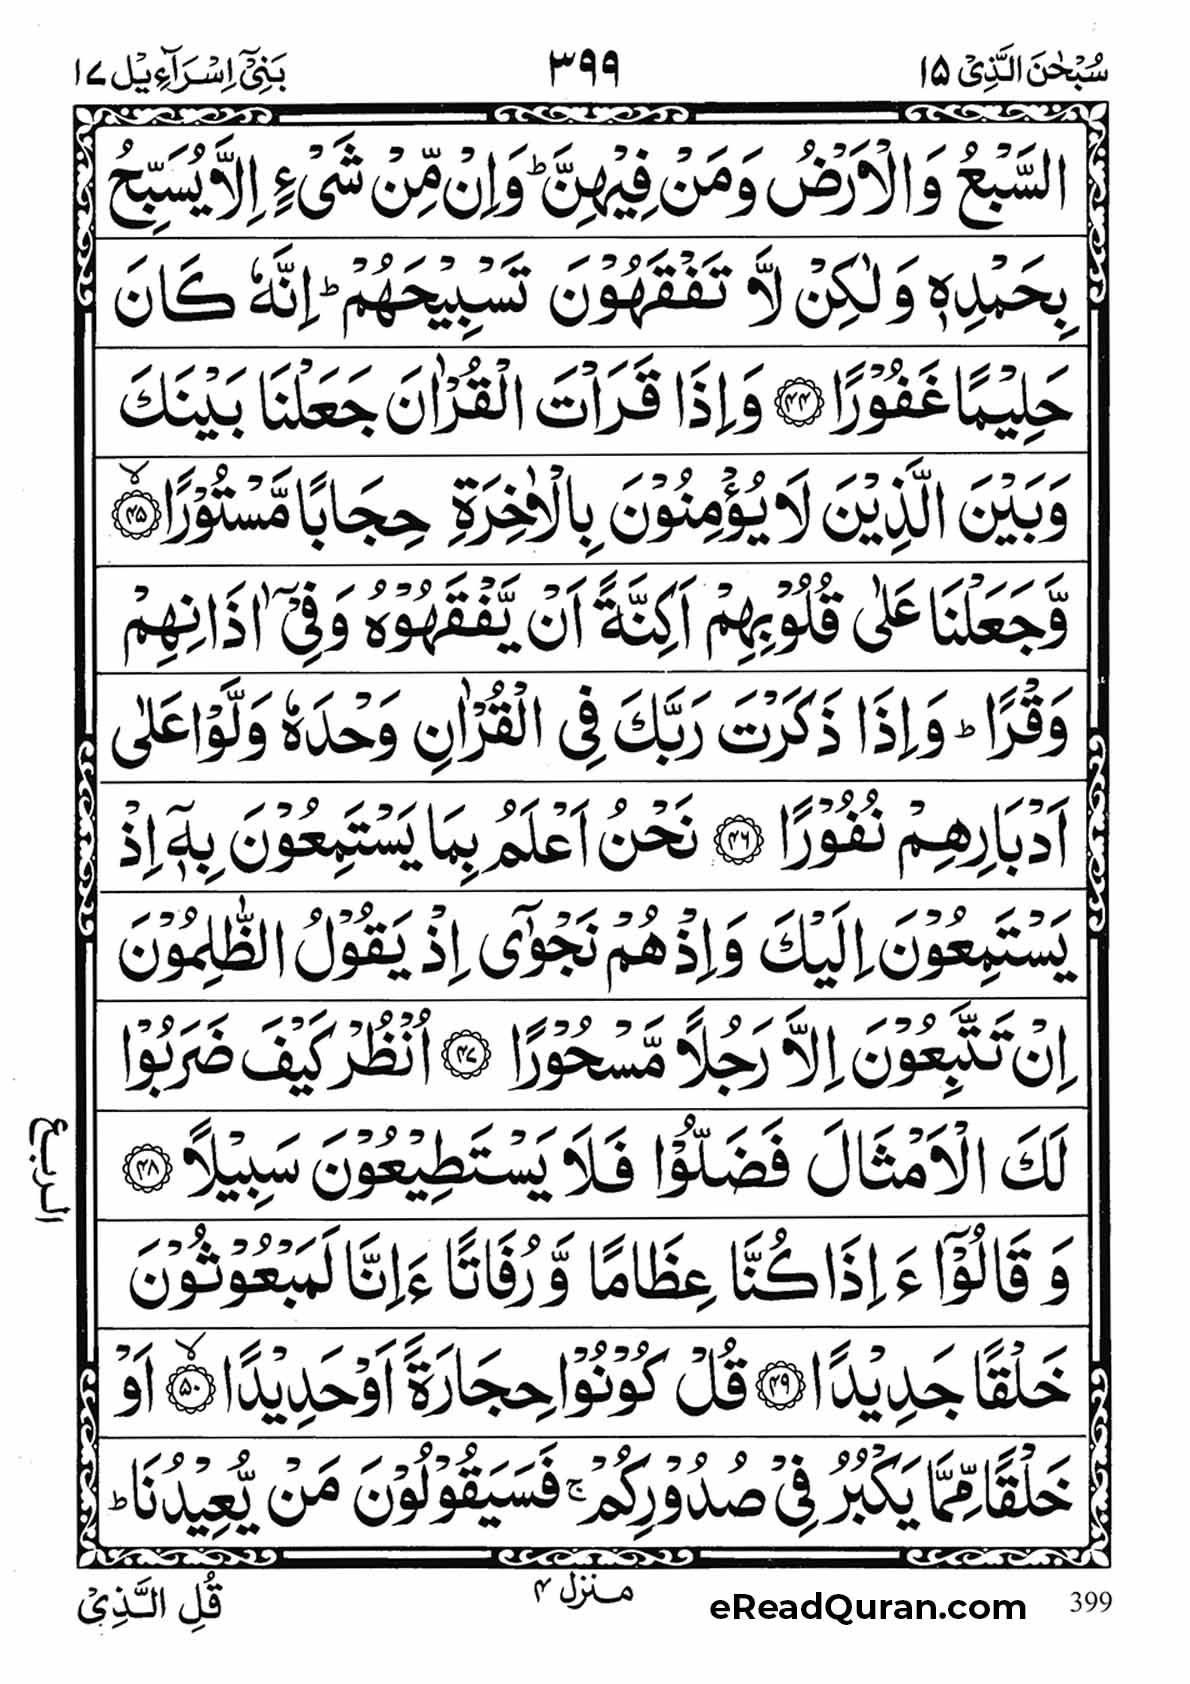 سُبْحٰنَ الَّذِیْۤ ۱۵
۳۹۹
بَنِیْۤ اِسْرَآءِیْل ۱۷
السَّبْعُ وَ الْاَرْضُ وَ مَنْ فِیْهِنَّ ؕ وَ اِنْ مِّنْ شَیْءٍ اِلَّا یُسَبِّحُ
بِحَمْدِهٖ وَ لٰكِنْ لَّا تَفْقَهُوْنَ تَسْبِیْحَهُمْ ؕ اِنَّهٗ كَانَ
حَلِیْمًا غَفُوْرًا ۝۴۴ وَ اِذَا قَرَاْتَ الْقُرْاٰنَ جَعَلْنَا بَیْنَكَ
وَ بَیْنَ الَّذِیْنَ لَا یُؤْمِنُوْنَ بِالْاٰخِرَةِ حِجَابًا مَّسْتُوْرًا ۝۴۵ۙ
وَّ جَعَلْنَا عَلٰی قُلُوْبِهِمْ اَكِنَّةً اَنْ یَّفْقَهُوْهُ وَ فِیْۤ اٰذَانِهِمْ
وَقْرًا ؕ وَ اِذَا ذَكَرْتَ رَبَّكَ فِی الْقُرْاٰنِ وَحْدَهٗ وَلَّوْا عَلٰۤی
اَدْبَارِهِمْ نُفُوْرًا ۝۴۶ نَحْنُ اَعْلَمُ بِمَا یَسْتَمِعُوْنَ بِهٖۤ اِذْ
یَسْتَمِعُوْنَ اِلَیْكَ وَ اِذْ هُمْ نَجْوٰۤی اِذْ یَقُوْلُ الظّٰلِمُوْنَ
اِنْ تَتَّبِعُوْنَ اِلَّا رَجُلًا مَّسْحُوْرًا ۝۴۷ اُنْظُرْ كَیْفَ ضَرَبُوْا
لَكَ الْاَمْثَالَ فَضَلُّوْا فَلَا یَسْتَطِیْعُوْنَ سَبِیْلًا ۝۴۸
وَ قَالُوْۤا ءَاِذَا كُنَّا عِظَامًا وَّ رُفَاتًا ءَاِنَّا لَمَبْعُوْثُوْنَ
خَلْقًا جَدِیْدًا ۝۴۹ قُلْ كُوْنُوْا حِجَارَةً اَوْ حَدِیْدًا ۝۵۰ۙ اَوْ
خَلْقًا مِّمَّا یَكْبُرُ فِیْ صُدُوْرِكُمْ ۚ فَسَیَقُوْلُوْنَ مَنْ یُّعِیْدُنَا ؕ
الربع
قُلِ الَّذِیْ
منزل ۴
eReadQuran.com
399